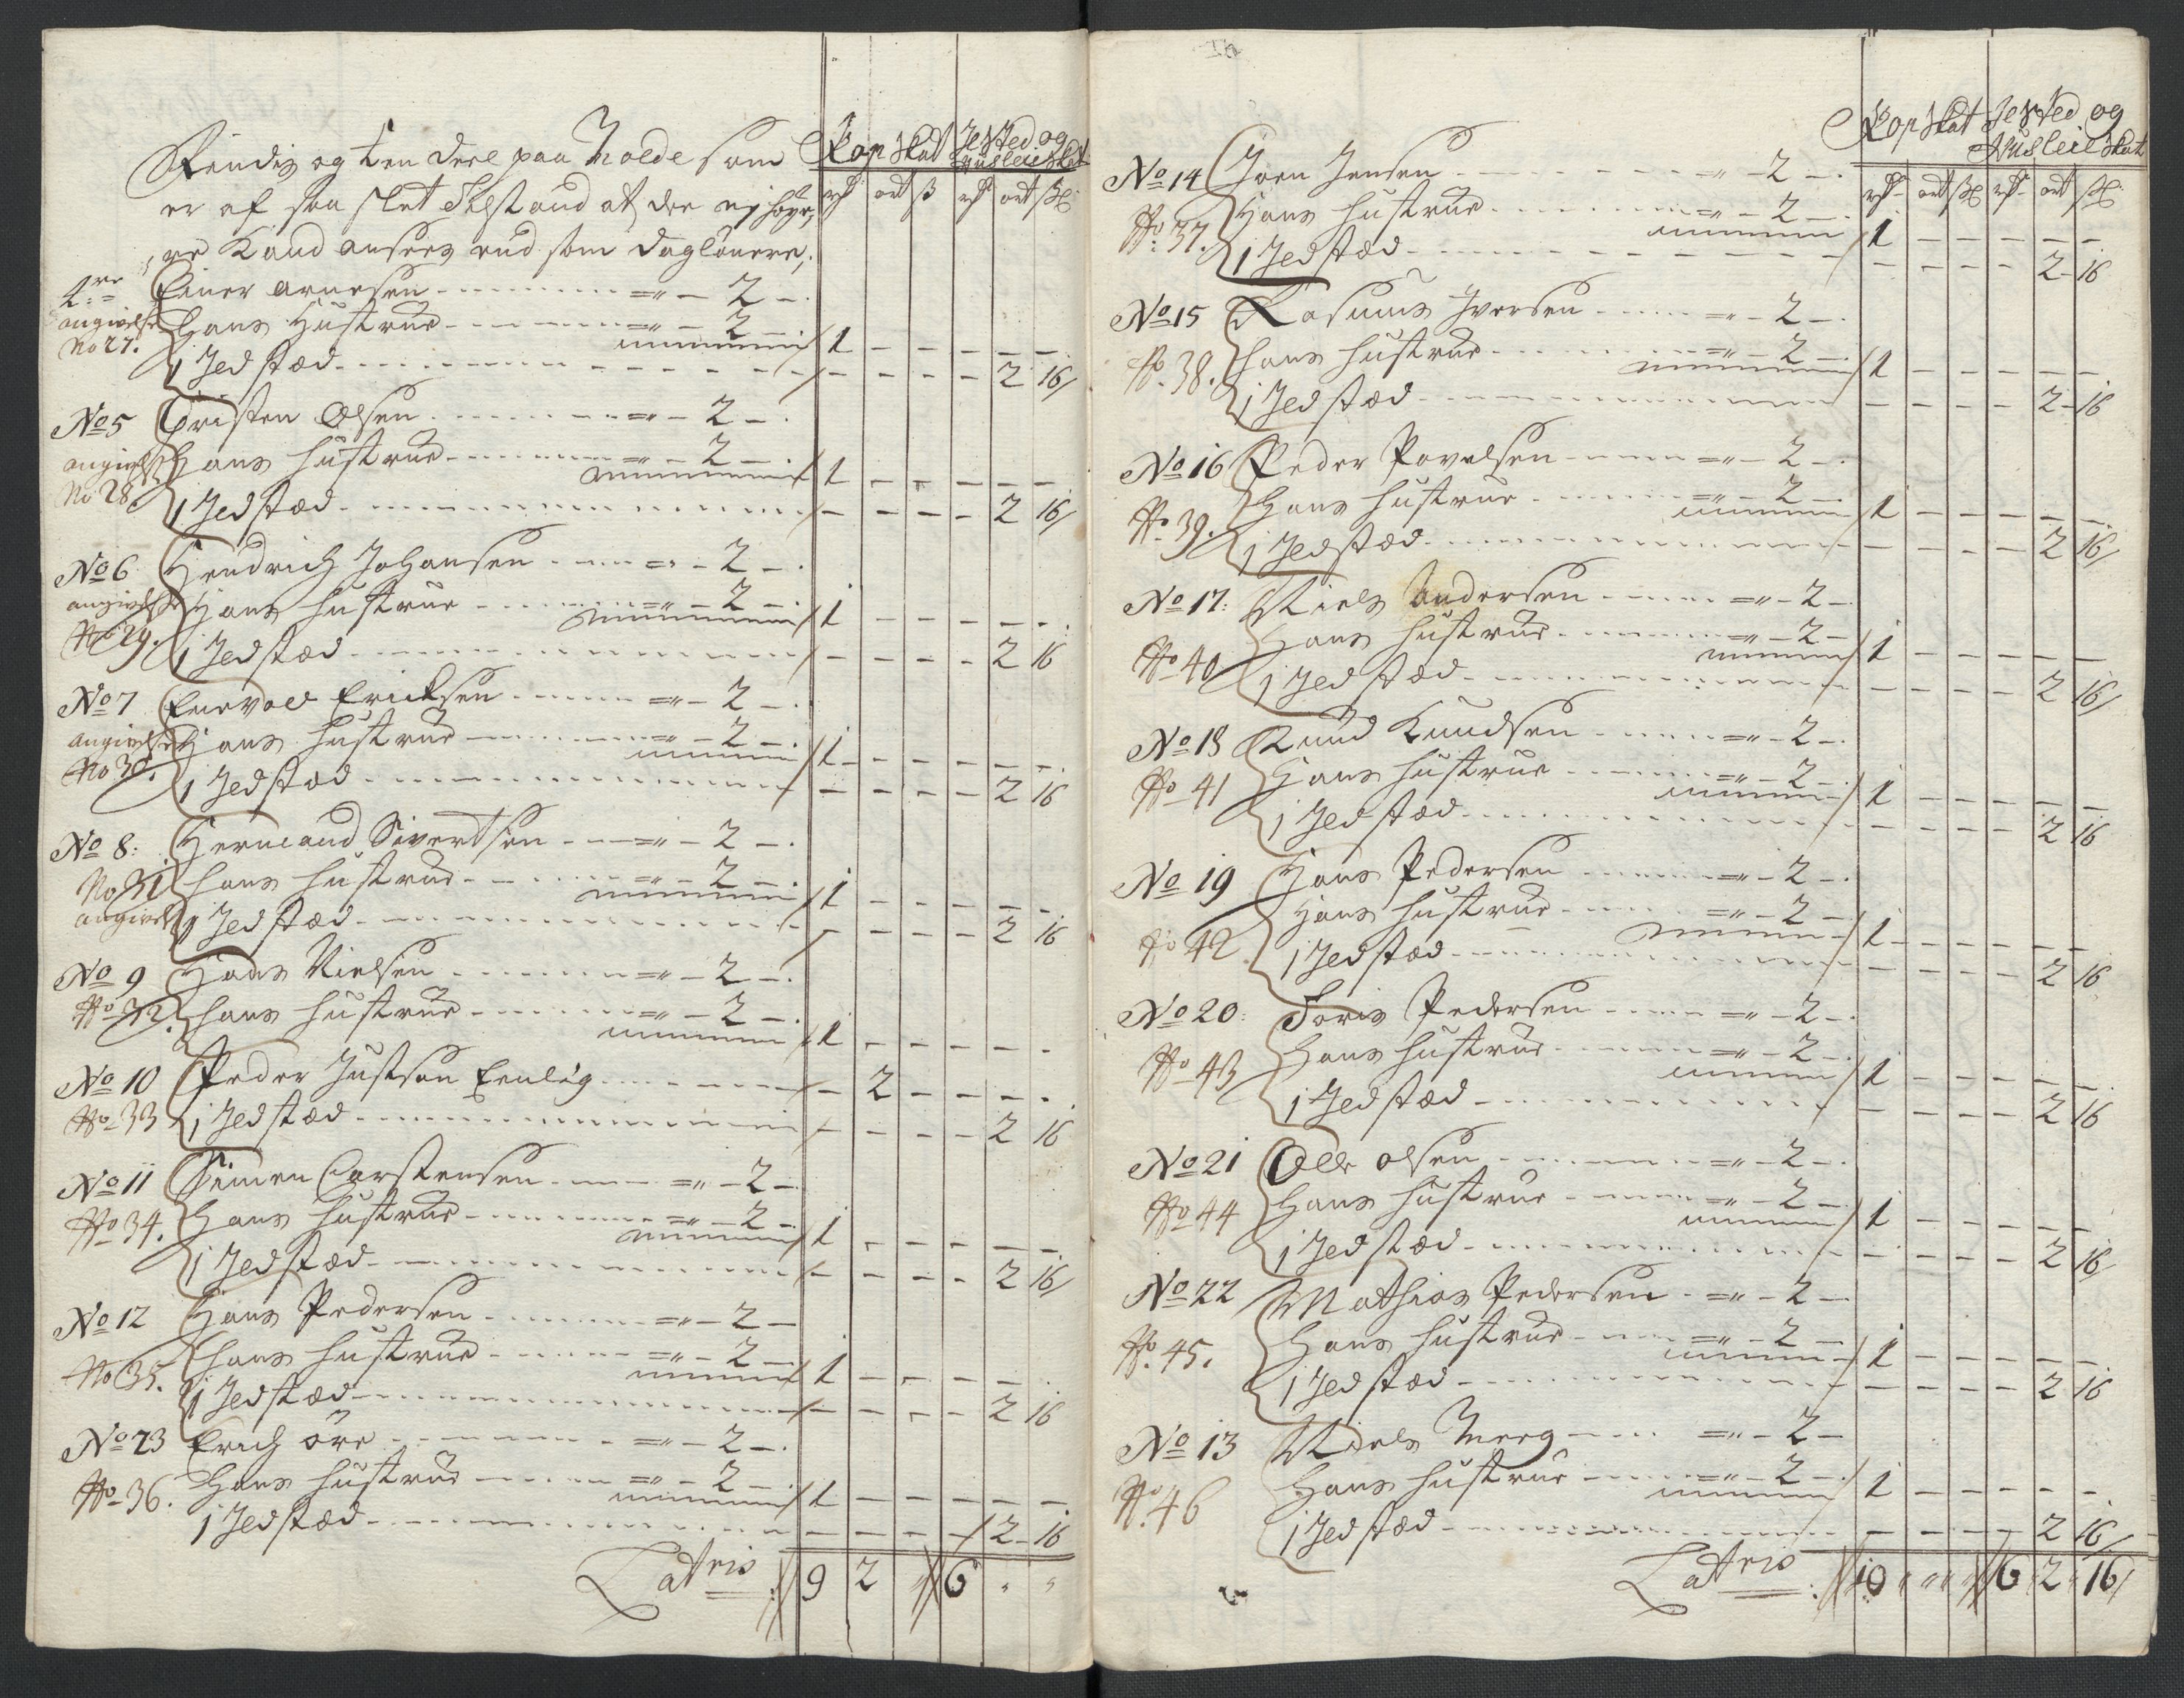 Kop Skat Jlsted og
Huusleie Skat
Findis og een deel paa Molde som
er af saa slet Tilstand at de ej høye,
re Kand ansees end som Daglønere,
rdr ort ß rdr ort ß
Einer Arnesen - - = " - 2 -
angivelse Hans Hustrue - - = " - 2 - 1 - - - - -
No 27. 1 Jldsted - - - - - 2 16
No 5 Christen Olsen - - = " - 2 -
angivelse Hans Hustrue - - = " - 2 - 1 - - - - -
No 28 1 Jldsted - - - - - 2 16
No 6 Hendrich Johansen - - = " - 2 -
angivelse Hans Hustrue - - = " - 2 - 1 - - - - -
No 29. 1 Jldsted - - - - - 2 16
No 7 Enevold Ericksen - - = " - 2 -
angivelse Hans Hustrue - - = " - 2 - 1 - - - - -
No 30. 1 Jldsted - - - - - 2 16
No 8: Hermand Sivertsen - - = " - 2 -
No 31 Hans Hustrue - - = " - 2 - 1 - - - - -
angivels 1 Jldsted - - - - - 2 16
No 9 Hans Nielsen - - = " - 2 -
No 32. Hans Hustrue - - = " - 2 - 1 - - - - -
No 10 Peder Justsen Eenlig - - - 2 - - - -
No 33 1 Jldsted - - - - - 2 16
No 11 Simen Carstensen - - = " - 2 -
No 34. Hans Hustrue - - = " - 2 - 1 - - - - -
1 Jldsted - - - - - 2 16
No 12 Hans Pedersen - - = " - 2 -
No 35. Hans Hustrue - - = " - 2 - 1 - - - - -
1 Jldsted - - - - - 2 16
No 23 Erich Öre - - = " - 2 -
No 36. Hans Hustrue - - = " - 2 - 1 - - - - -
1 Jldsted - - - - - 2 16
Latris 9 2 " 6 " "
Kop Skat Jlsted og
Huusleie Skat
rdr ort ß rdr ort ß
No 14 Joen Jensen - - = " - 2 -
No 37. Hans Hustrue - - = " - 2 - 1 - - - - -
1 Jldsted - - - - - 2 16
No 15 Rasmus Iversen - - = " - 2 -
No 38. Hans Hustrue - - = " - 2 - 1 - - - - -
1 Jldsted - - - - - 2 16
No 16 Peder Povelsen - - = " - 2 -
No 39. Hans Hustrue - - = " - 2 - 1 - - - - -
1 Jldsted - - - - - 2 16
No 17: Niels Andersen - - = " - 2 -
No 40 Hans Hustrue - - = " - 2 - 1 - - - - -
1 Jldsted - - - - - 2 16
No 18 Knud Knudsen - - = " - 2 -
No 41 Hans Hustrue - - = " - 2 - 1 - - - - -
1 Jldsted - - - - - 2 16
No 19 Hans Pedersen - - = " - 2 -
No 42 Hans Hustrue - - = " - 2 - 1 - - - - -
1 Jldsted - - - - - 2 16
No 20: Joris Pedersen - - = " - 2 -
No 43 Hans Hustrue - - = " - 2 - 1 - - - - -
1 Jldsted - - - - - 2 16
No 21 Olle Olsen - - = " - 2 -
No 44 Hans Hustrue - - = " - 2 - 1 - - - - -
1 Jldsted - - - - - 2 16
No 22 Mathias Pedersen - = " - 2 -
No 45. Hans Hustrue - - = " - 2 - 1 - - - - -
1 Jldsted - - - - - 2 16
No 13 Niels Meeg - - = " - 2 -
No 46 Hans Hustrue - - = " - 2 - 1 - - - - -
1 Jldsted - - - - - 2 16
Latris 10 " " 6 2 16